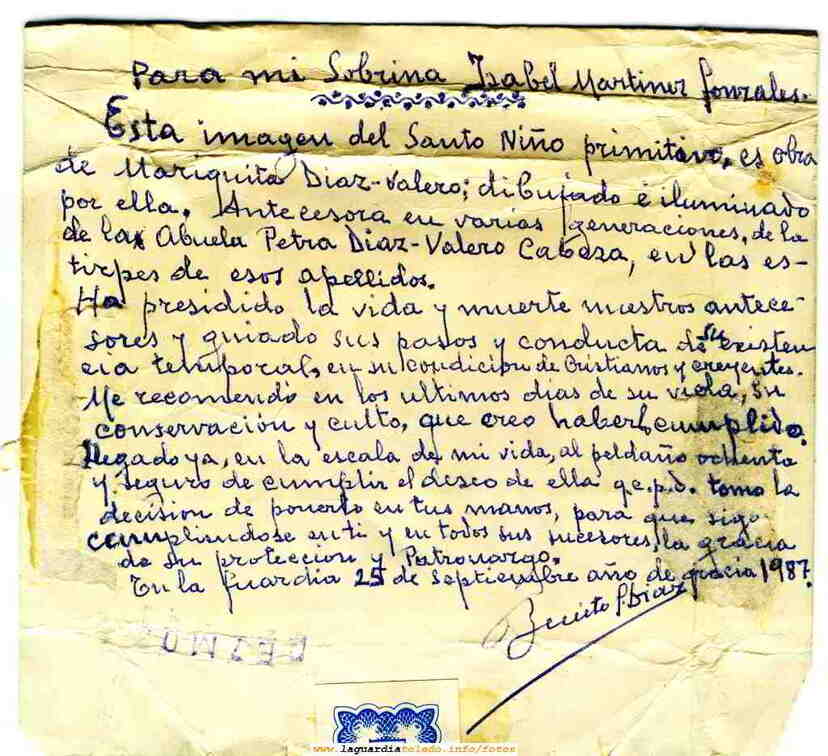 Para mi Sobrina Isabel Martinez Gonzales.
Esta imagen del Santo Niño primitivo, es obra
de Mariquita Diaz-Valero; dibujado é iluminado
por ella. Antecesora en varias generaciones, de la
de la Abuela Petra Diaz-Valero Cabeza, en las es-
tirpes de esos apellidos.
Ha presidido la vida y muerte nuestros antece-
sores y guiado sus pasos y conducta de su existen
cia temporal, en su condición de Cristianos y creyentes.
Me recomendó en los ultimos dias de su vida, su
conservación y culto, que creo haber cumplido.
Llegado ya, en la escala de mi vida, al peldaño ochenta
y seguro de cumplir el deseo de ella q.e.p.d. tomo la
decision de ponerlo en tus manos, para que siga
cumpliendose en ti y en todos sus sucesores, la gracia
de su protección y Patronazgo.
En la Guardia 25 de Septiembre año de gracia 1987.
Benito P. Diaz
www.laguardiatoledo.info/fotos